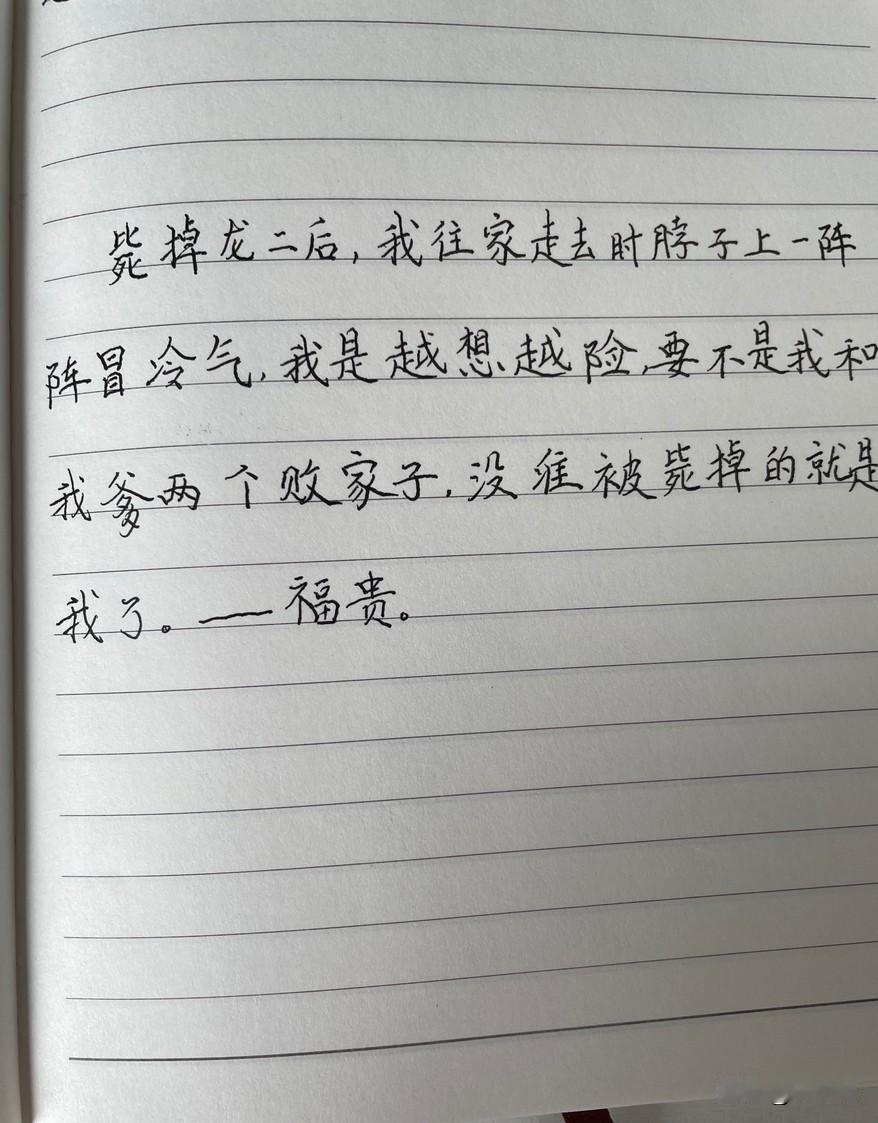 毙掉龙二后，我往家走去时脖子上一阵
阵冒冷气，我是越想越险，要不是我和
我爹两个败家子，没准被毙掉的就是
我了。——福贵。